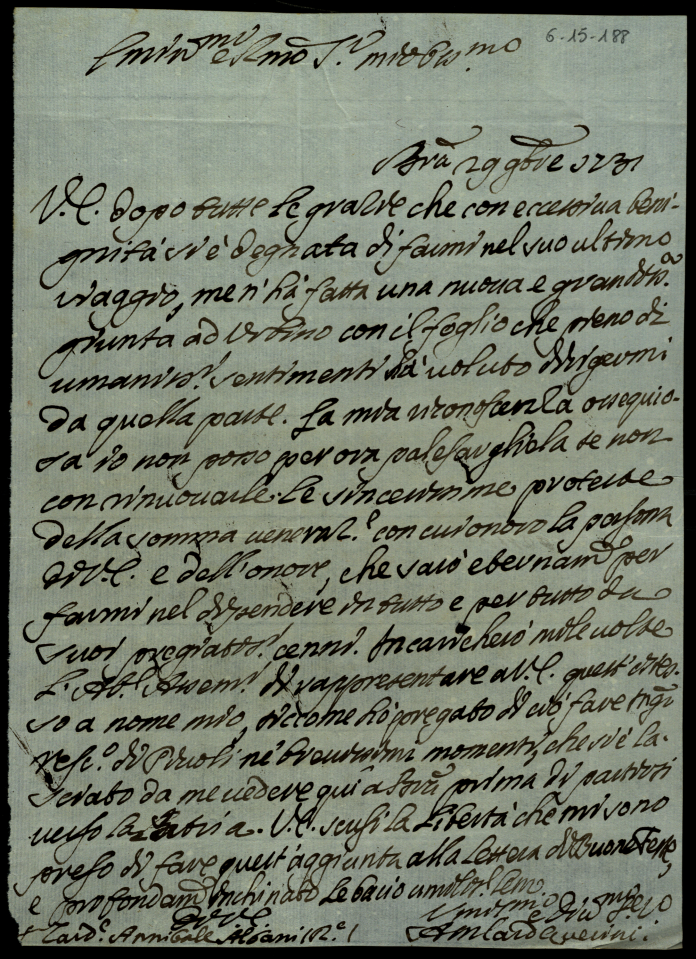 6-15-188
Emin.mo e Rmo S.r mio oss.mo
Brã 29 9bre 1731
V. E. dopo tutte le grazie che con eccessiva beni-
gnità si è degnata di farmi nel suo ultimo
viaggio, me n'hà fatta una nuova e grandiss.a
giunta ad Urbino con il foglio che pieno di
umaniss.i sentimenti hà voluto dirigermi
da quella parte. La mia riconoscenza ossequio-
sa io non posso per ora palesarghiela se non
con rinuovarle le sincerissime proteste
della somma veneraz.e con cui onoro la persona
di V. E. e dell'onore, che sarò eternam.te per
farmi nel dipendere in tutto e per tutto da
suoi pregiatiss.i cenni. Incaricherò mille volte
l'Ab.e di rappresentare a V. E. quest'istes-
so a nome mio, siccome hò pregato di ciò fare
Vesc.o di ne brevissimi momenti, che si è la-
sciato da me vedere qui a Brã prima di partirsi
verso la Patria. V. E. scusi la libertà che mi sono
preso di fare quest'aggiunta alla lettera di Buone Feste,
e profondam.te inchinato le bacio umiliss.e
di V. E.
Card.e Annibale Albani
A. M. Card. Querini.